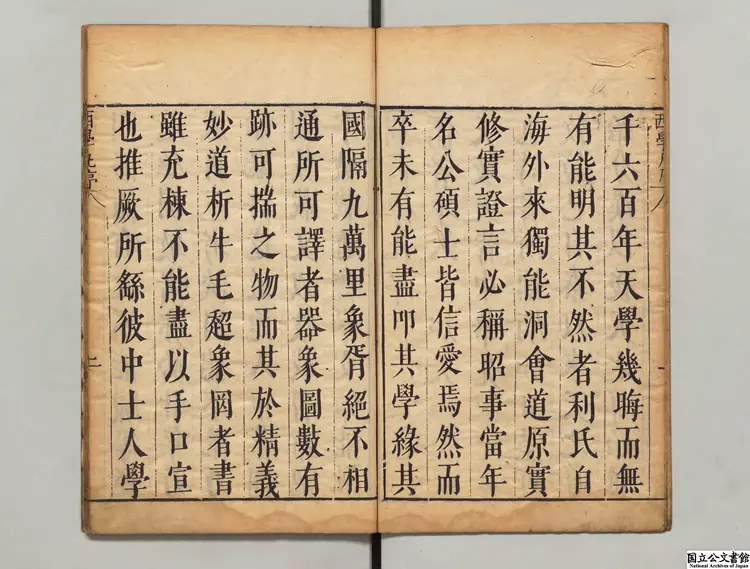 千六百年天學幾晦而無
有能明其不然者利氏自
海外來獨能洞會道原實
修實證言必稱昭事當年
名公碩士皆信愛焉然而
卒未有能盡叩其學緣其
國隔九萬里象胥絕不相
通所可譯者器象圖數有
跡可揣之物而其於精義
妙道析牛毛超象罔者書
雖充棟不能盡以手口宣
也推厥所繇彼中士人學
國立公文書館
National Archives of Japan